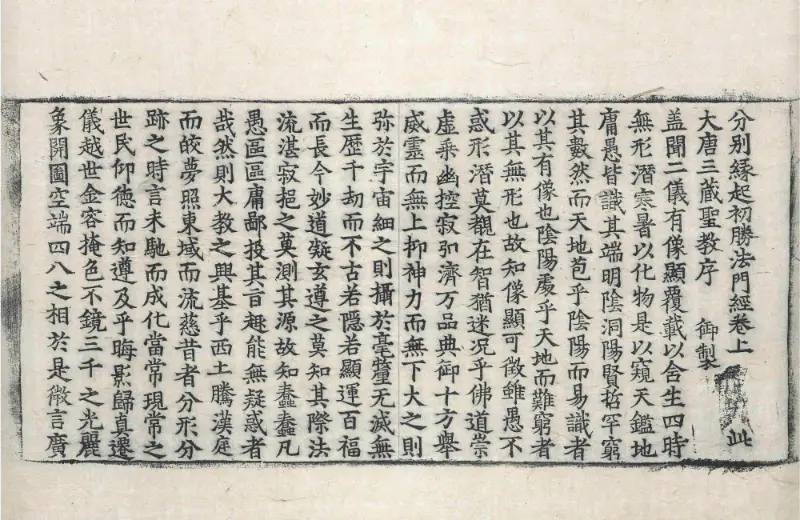 分別緣起初勝法門經卷上 此
大唐三藏聖教序 御製
盖聞二儀有像顯覆載以含生四時
無形潛寒暑以化物是以窺天鑑地
庸愚皆識其端明陰洞陽賢哲罕窮
其數然而天地苞乎陰陽而易識者
以其有像也陰陽處乎天地而難窮者
以其無形也故知像顯可徵雖愚不
惑形潛莫覩在智猶迷况乎佛道崇
虛乘幽控寂弘濟万品典御十方舉
威靈而無上抑神力而無下大之則
弥於宇宙細之則攝於毫氂无滅無
生歷千劫而不古若隱若顯運百福
而長今妙道凝玄遵之莫知其際法
流湛寂挹之莫測其源故知蠢蠢凡
愚區區庸鄙投其旨趣能無疑惑者
哉然則大教之興基乎西土騰漢庭
而皎夢照東域而流慈昔者分形分
跡之時言未馳而成化當常現常之
世民仰德而知遵及乎晦影歸真遷
儀越世金容掩色不鏡三千之光麗
象開圖空端四八之相於是微言廣